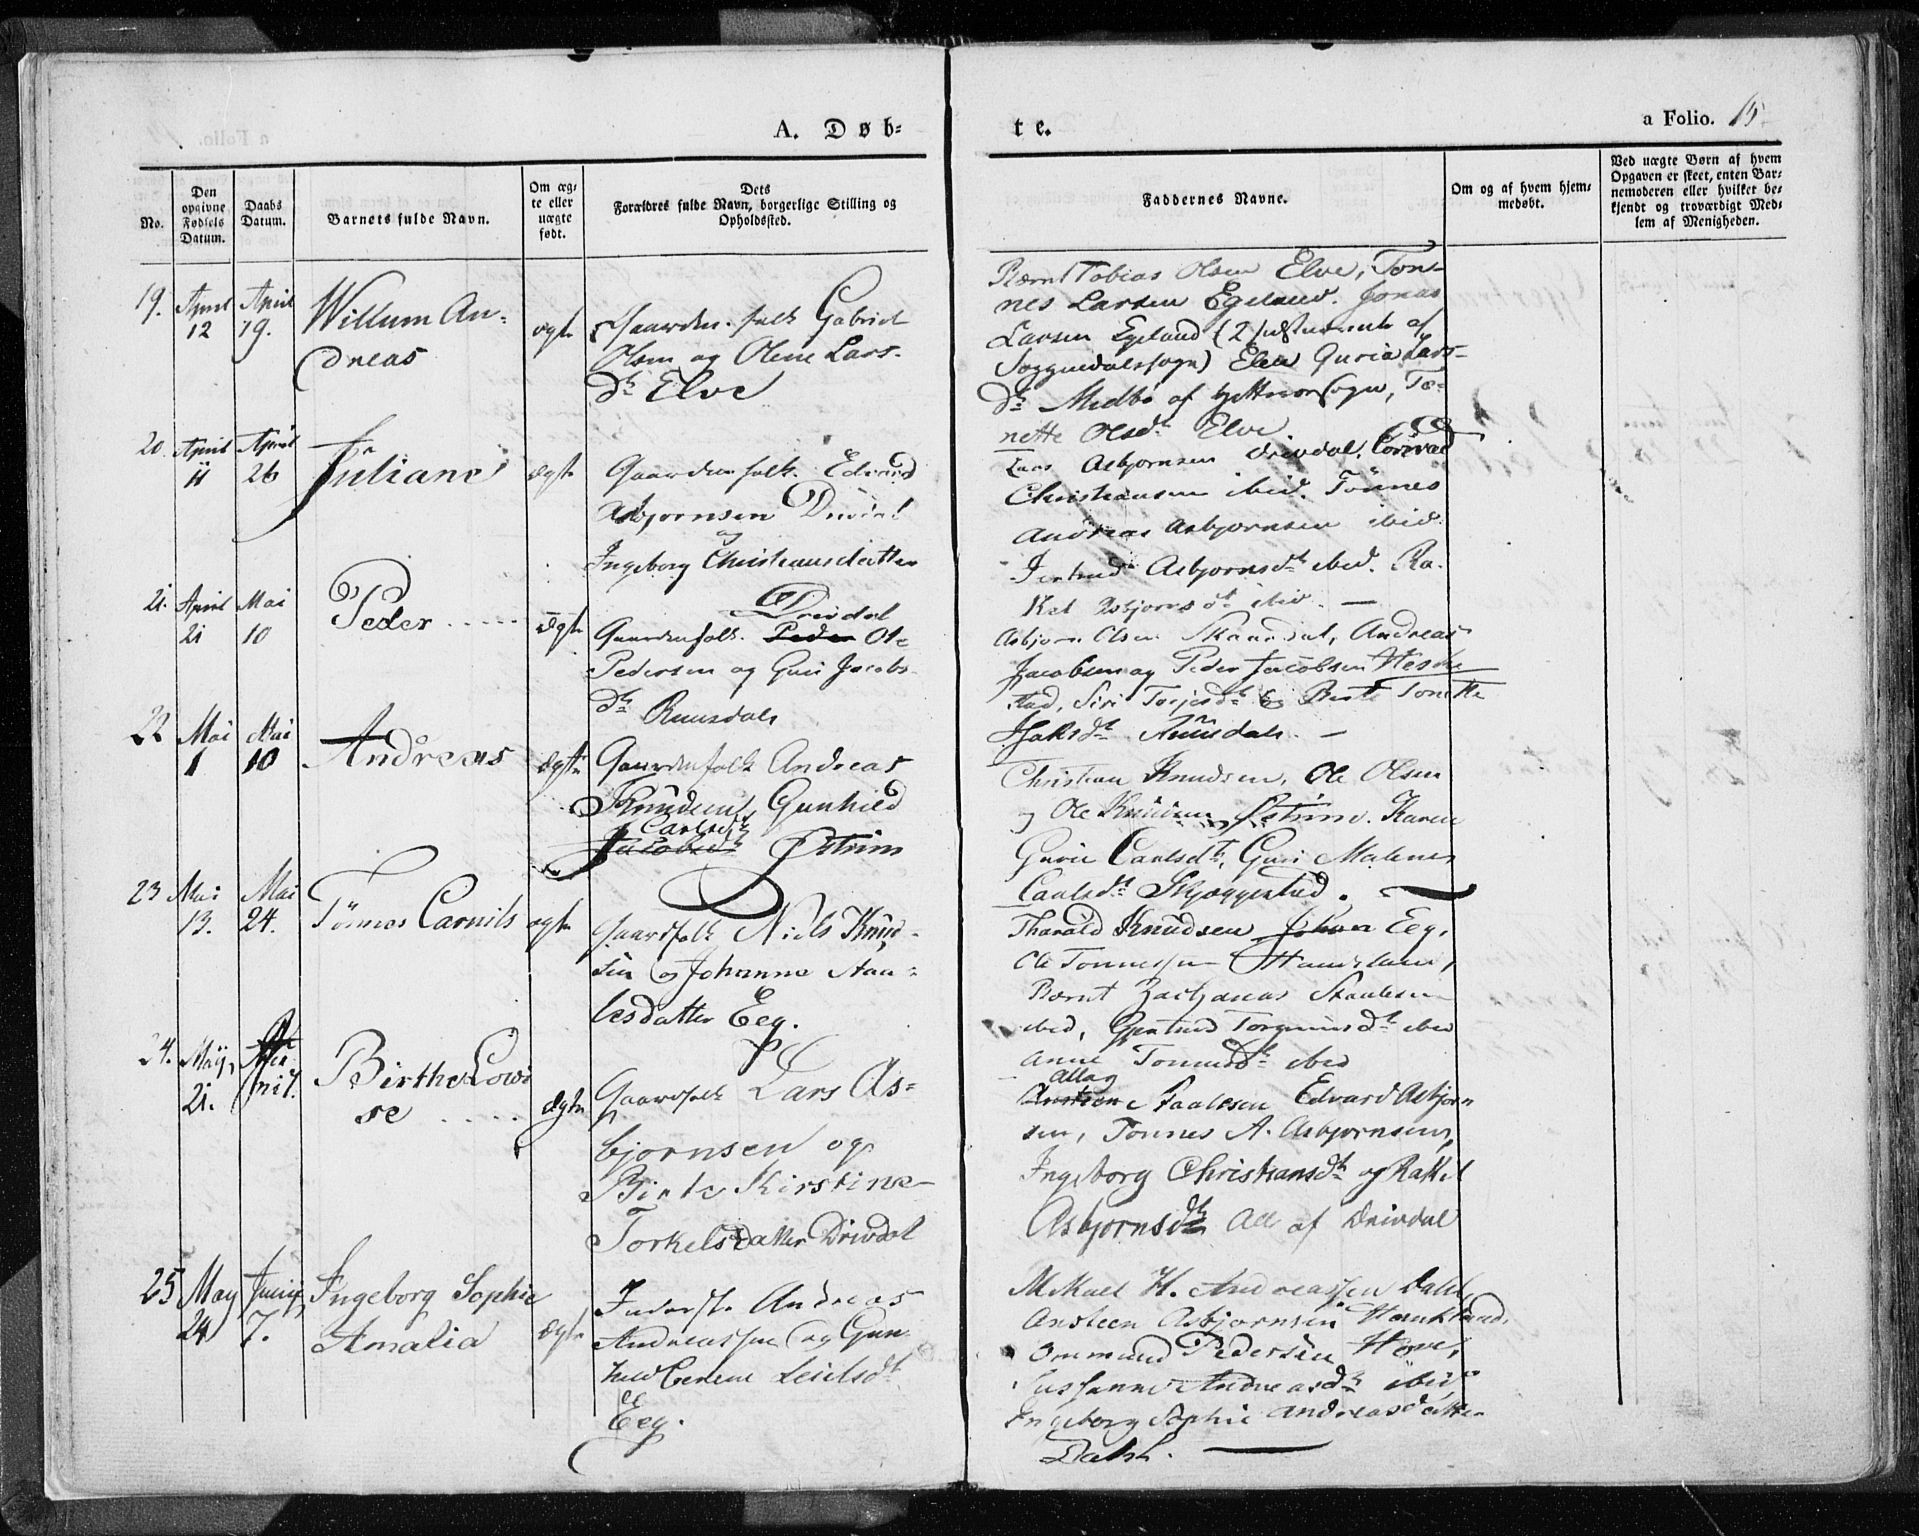 A. Døb-
te.
a Folio. 15
No.
Den opgivne Fødsels Datum.
Daabs Datum.
Barnets fulde Navn.
Om ægte eller uægte født.
Dets
Forældres fulde Navn, borgerlige Stilling og Opholdssted.
Faddernes Navne.
Om og af hvem hjemmedøbt.
Ved uægte Børn af hvem
Opgaven er skeet, enten Bar-
nemoderen eller hvilket be-
kjendt og troværdigt Med-
lem af Menigheden.
19. April 12 April 19.
Willum An-
dreas
ægte
Gaardm. folk Gabriel
Olsen og Olene Lars-
dt Elve
Bernt Tobias Olsen Elve, Ton-
nes Larsen Egeland. Jonas
Larsen Egeland (2 af
Soggndalssogn) Elen Guria Lars-
dt Midbø af sogn, To-
nette Olsdt Elve
20. April 11 April 26
Juliane
ægte
Gaardmfolk. Edvard
Asbjornsen Drivdal
og
Ingeborg Christiansdatter
Drivdal
Lars Asbjornsen Drivdal,
Christiansen ibid. Tönnes
Andreas Asbjornsen ibid.
Asbjornsdt ibid. Ra-
kel Asbjornsdt ibid. —
21. April 21 Mai 10
Peder
ægte
Gaardmfolk. Peder Ole
Pedersen og Guri Jacobs-
dt Ruusdale
Asbjorn Olsen Skaardal, Andreas
Jacobsen og Peder Jacobsen Heske-
stad, Siri dt Eg Berte Tonette
dt Ruusdale. —
22 Mai 1 Mai 10
Andreas
ægte
Gaardmfolk Andreas
Knudsen, Gunhild
Carlsdt
Jacobsdt Østrim
Christian Knudsen, Ole Olsen
og Ole Knudsen Østrim. Karen
Gurie Carlsdt, Guri Malene
Carlsdt Skjæggestad. —
23 Mai 13. Mai 24.
Tönnes Carnils
ægte
Gaardfolk Niels Knud-
sen og Johanne Staa-
lesdatter Eeg.
Tharald Knudsen Johan Eeg,
Ole Tonnessen
Bernt Zacharias Staalesen
ibid, Gjertrud dt ibid
Anne Tonnesdt ibid
24. Maij 21. 7.
Birthe Lowi
se
ægte
Gaardfolk Lars As-
bjornsen og
Birte Kirstine
Torkelsdatter Drivdal
Atlag
Paalesen Edvard Asbjorn
sen, Tonnes A. Asbjornsen,
Ingeborg Christiansdt og Rakkel
Asbjornsdt Alle af Drivdal
25 May 24 Junij 7.
Ingeborg Sophie
Amalia
ægte
Inderste Andreas
Andreassen og Gun
hild Berene dt
Eeg.
Mikael H. Andreassen Dahl,
Ansteen Asbjornsen
Ommund Pedersen Hove,
Sussanne Andreasdt ibid
Ingeborg Sophie Andreasdatter
Dahl. —